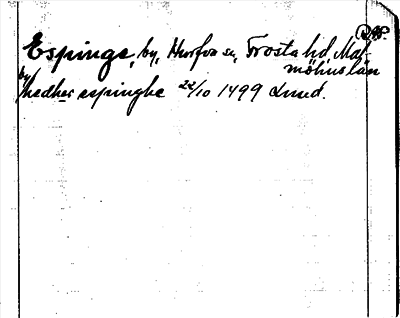 Espinge, by, Hurfva sn, Frosta hd, Mal-
möhus län
by
nedher espinghe 22/10 1499 Lund.